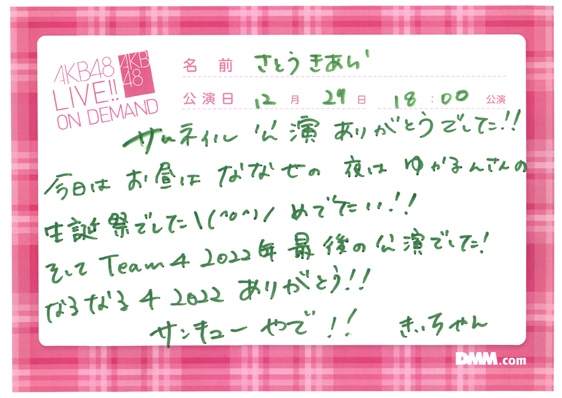 AKB48
LIVE!!
ON DEMAND
AKB
48
名前 さとうきあい
公演日 12月29日 18:00 公演
サムネイル公演ありがとうでした!!
今日はお昼はななせの夜はゆかるんさんの
生誕祭でした\(^o^)/めでたい!!
そしてTeam4 2022年最後の公演でした!
なるなる4 2022 ありがとう!!
サンキューやで!! きぃちゃん
DMM.com